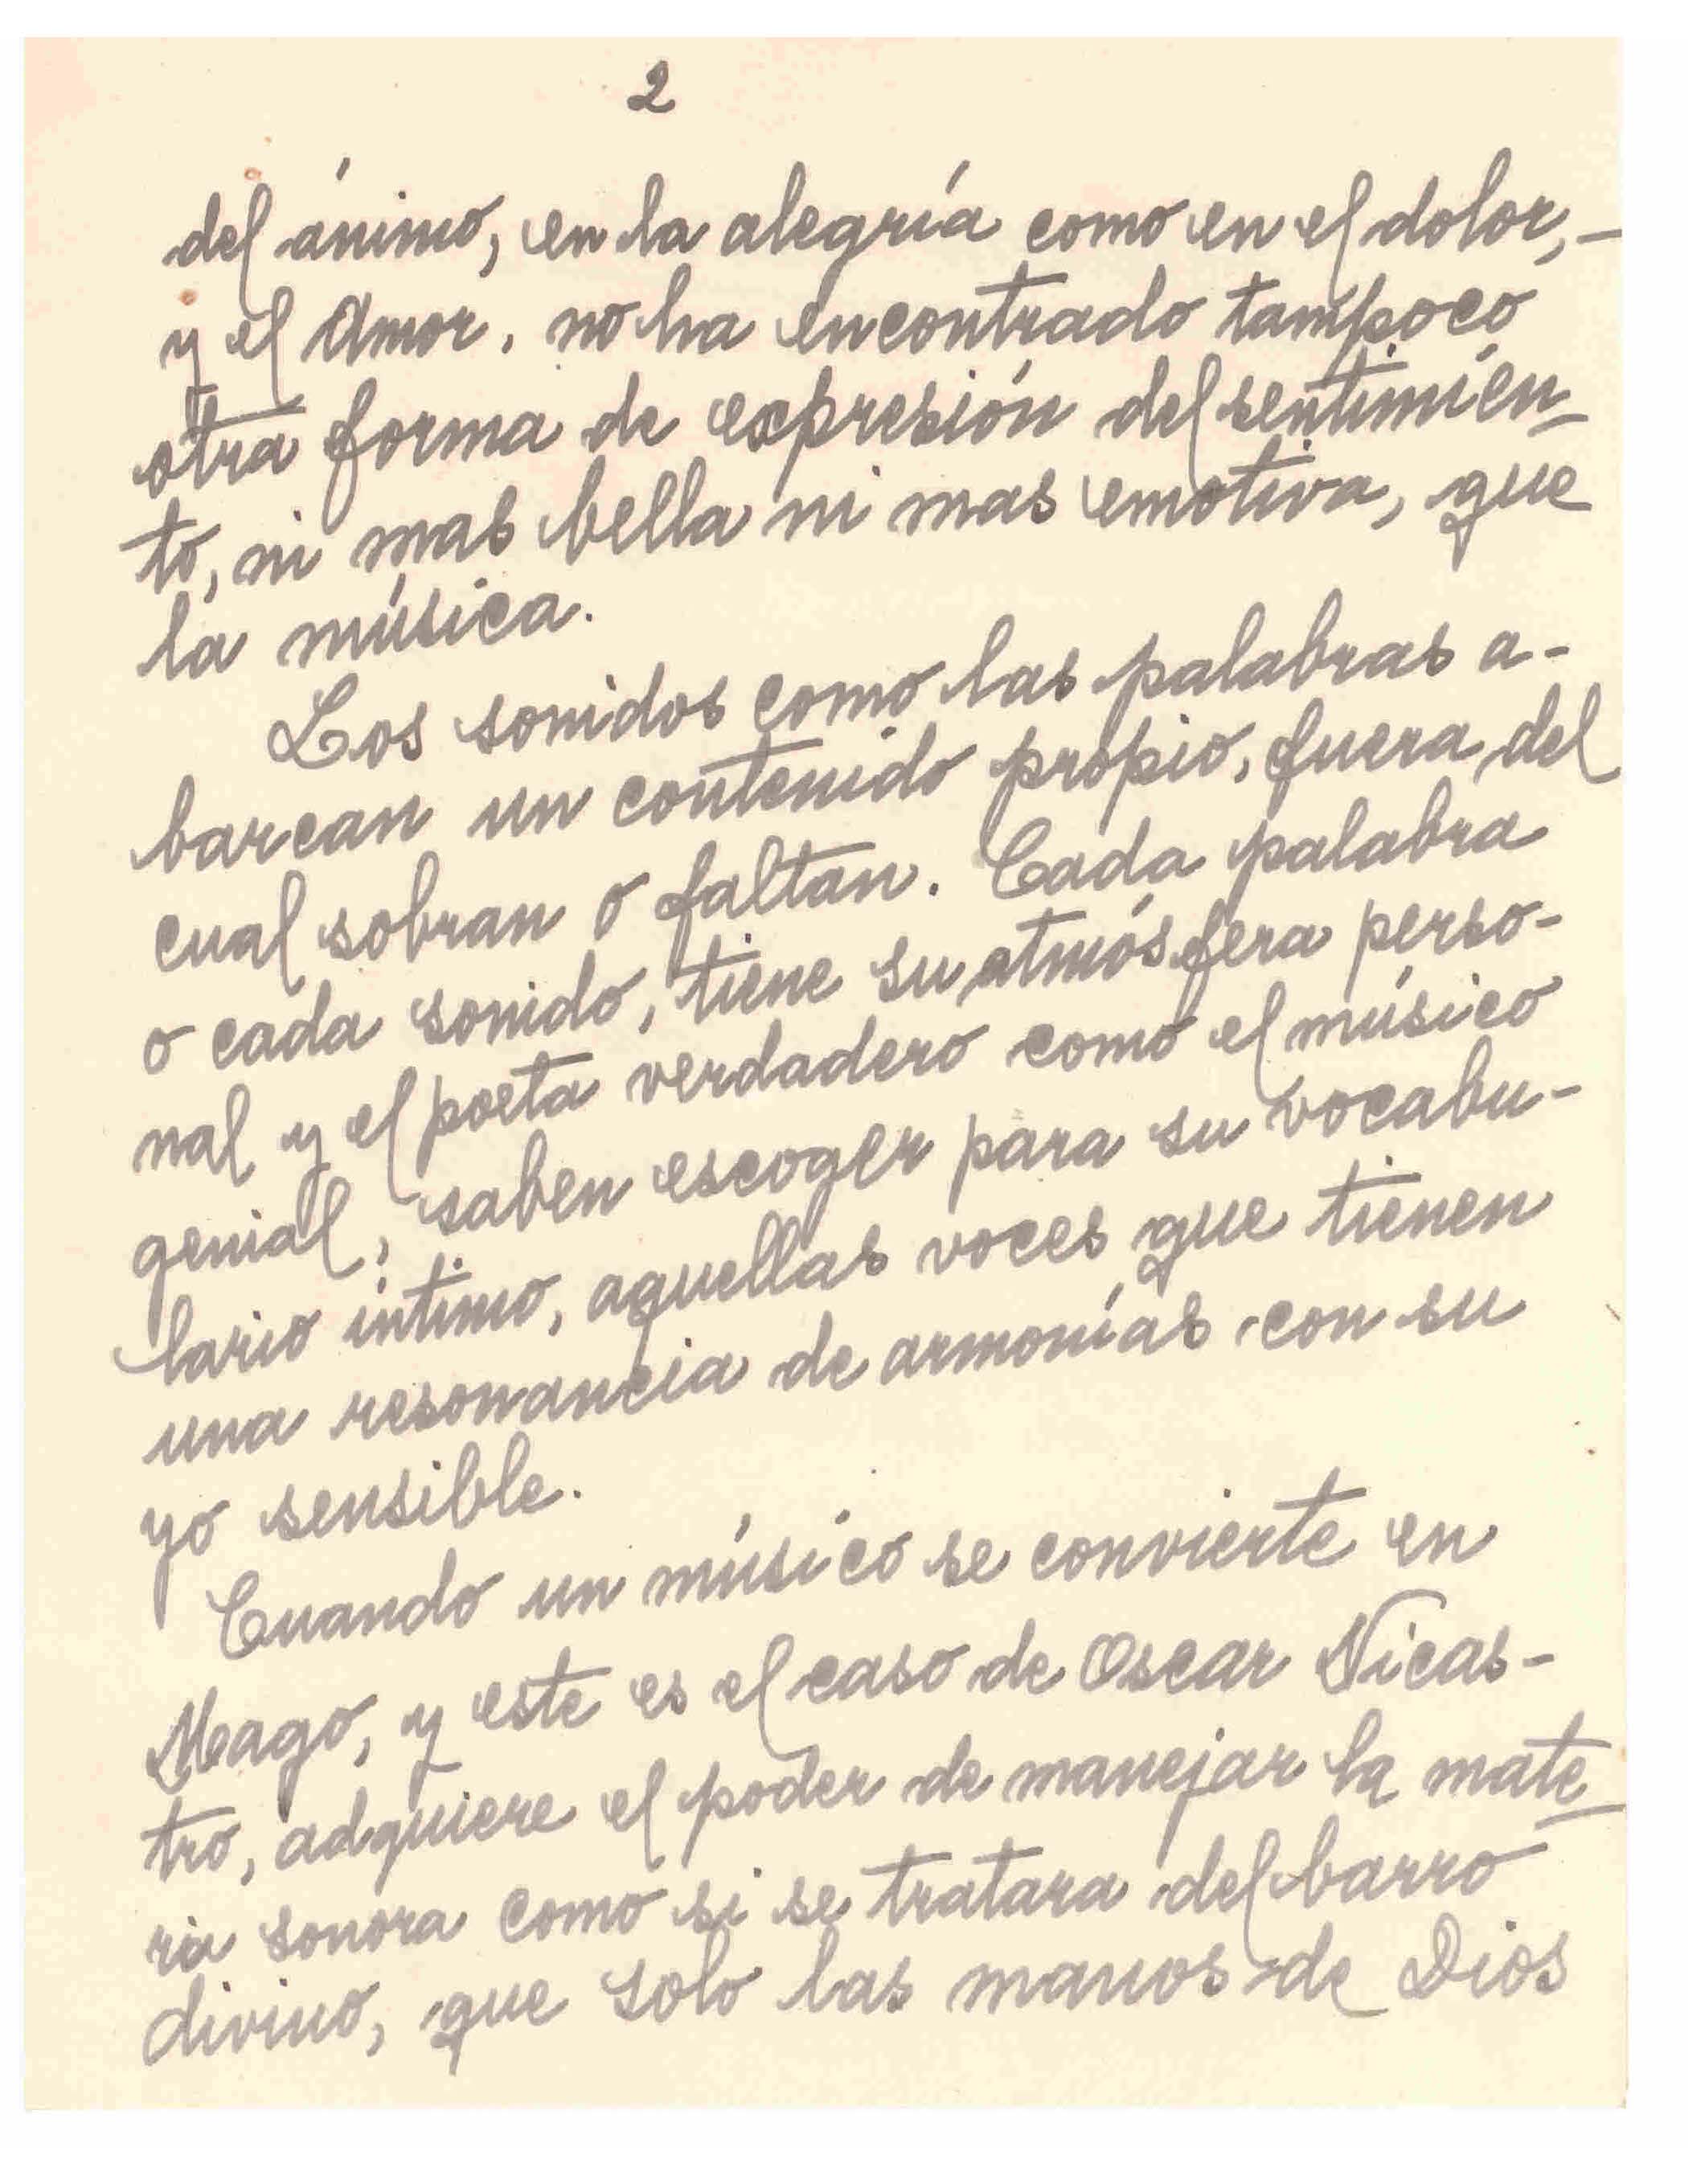 2
del ánimo, en la alegría como en el dolor, -
y el Amor, no ha encontrado tampoco
otra forma de expresión del sentimien-
to, ni mas bella ni mas emotiva, que
la música.
Los sonidos como las palabras a-
barcan un contenido propio, fuera del
cual sobran o faltan. Cada palabra
o cada sonido, tiene su atmósfera perso-
nal y el poeta verdadero como el músico
genial, saben escoger para su vocabu-
lario íntimo, aquellas voces que tienen
una resonancia de armonías con su
yo sensible.
Cuando un músico se convierte en
Mago, y este es el caso de Oscar Nicas-
tro, adquiere el poder de manejar la mate-
ria sonora como si se tratara del barro
divino, que solo las manos de Dios